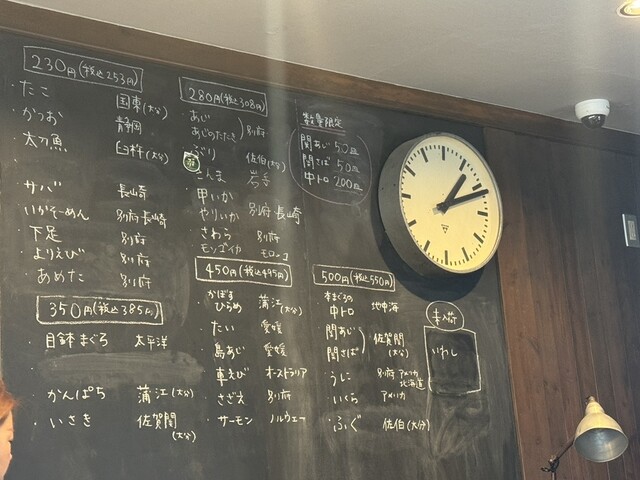 230円(税込253円)
・たこ 国東(大分)
・かつお 静岡
・太刀魚 臼杵(大分)
・サバ 長崎
・いかそーめん 別府 長崎
・下足 別府
・よりえび 別府
・あめた 別府
350円(税込385円)
・目鉢まぐろ 太平洋
・かんぱち 蒲江(大分)
・いさき 佐賀関(大分)
280円(税込308円)
・あじ
・あじのたたき 別府
・ぶり 佐伯(大分)
さんま 岩手
・甲いか
・やりいか 別府 長崎
・さわら 別府
・モンゴイカ モロッコ
450円(税込495円)
・かぼすひらめ 蒲江(大分)
・たい 愛媛
・島あじ 愛媛
・車えび オーストラリア
・さざえ 別府
・サーモン ノルウェー
数量限定
関あじ 50皿
関さば 50皿
中トロ 200皿
500円(税込550円)
・本まぐろの中トロ 地中海
・関あじ
・関さば 佐賀関(大分)
・うに 別府 アメリカ 北海道
・いくら アメリカ
・ふぐ 佐伯(大分)
未入荷
いわし